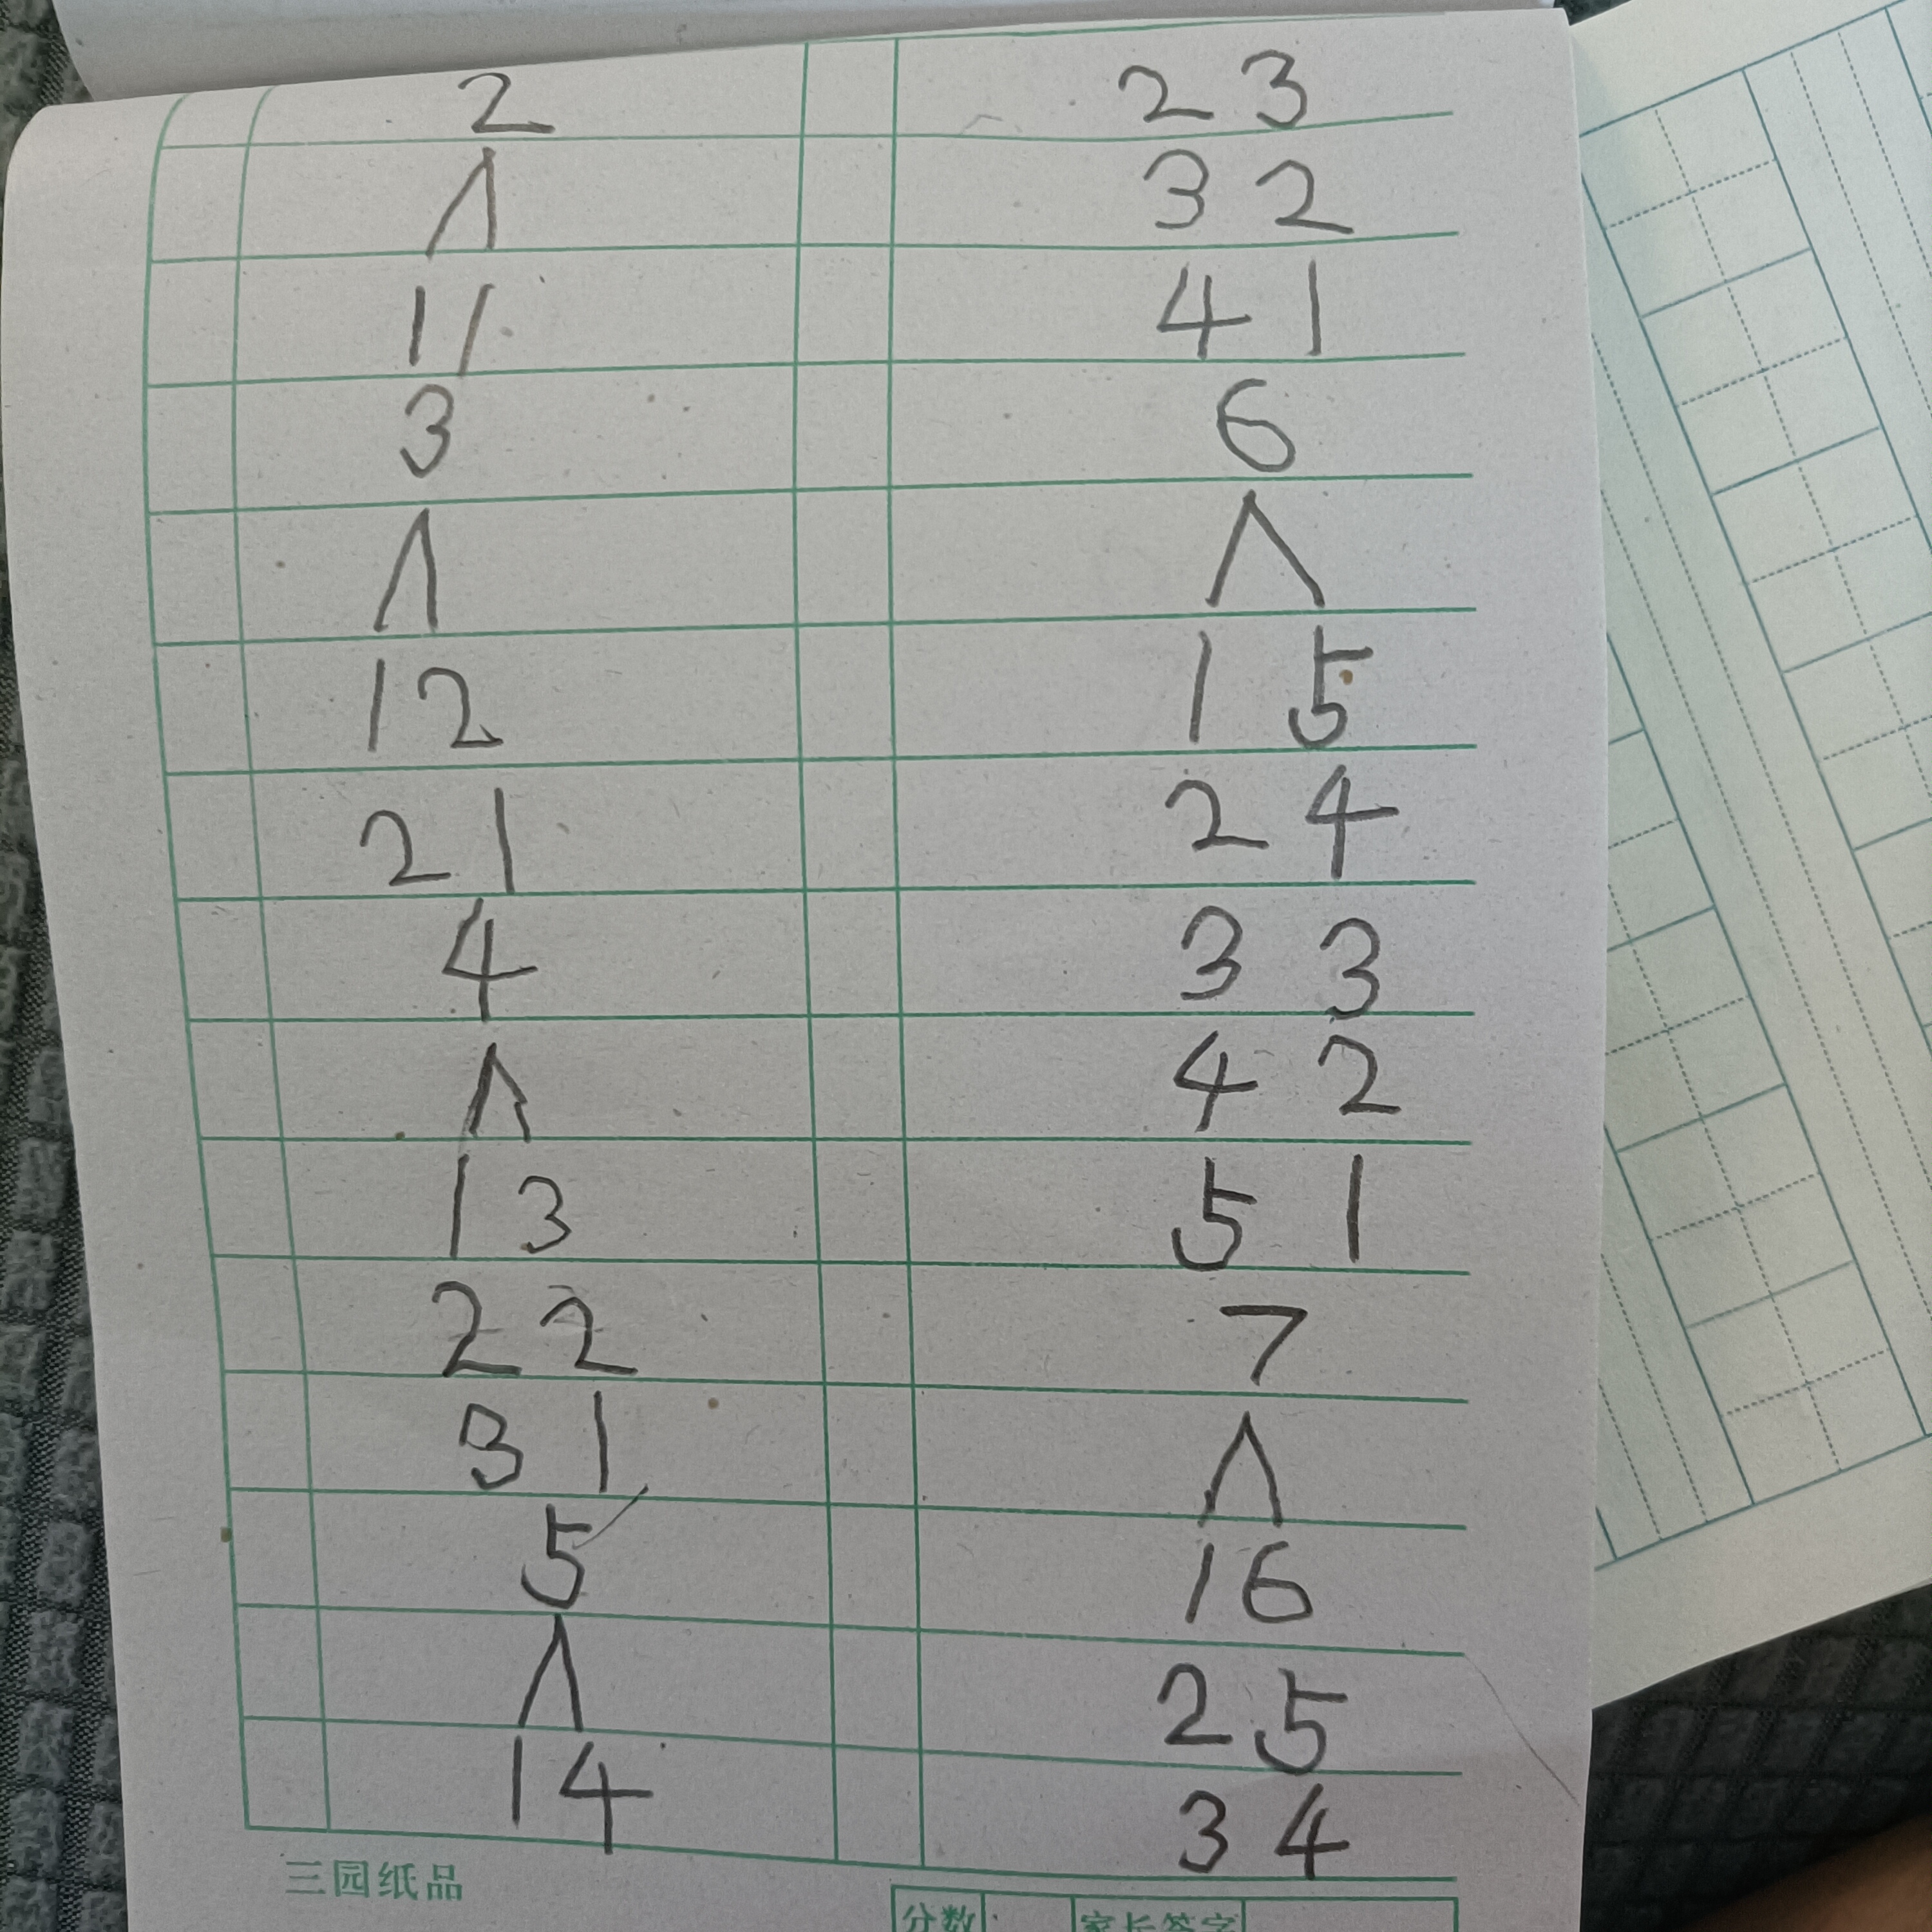 2
∧
1 1
3
∧
1 2
2 1
4
∧
1 3
2 2
3 1
5
∧
1 4
2 3
3 2
4 1
6
∧
1 5
2 4
3 3
4 2
5 1
7
∧
1 6
2 5
3 4
三园纸品
分数
家长签字